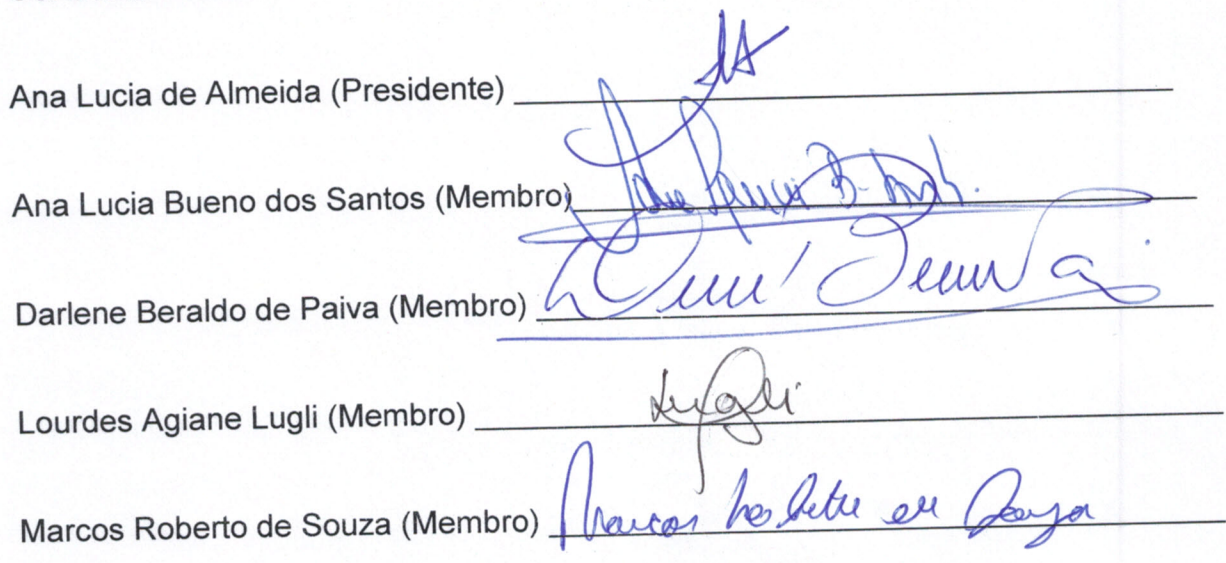 Ana Lucia de Almeida (Presidente)
Ana Lucia Bueno dos Santos (Membro)
Darlene Beraldo de Paiva (Membro)
Lourdes Agiane Lugli (Membro) Lugli
Marcos Roberto de Souza (Membro) Marcos Roberto de Souza